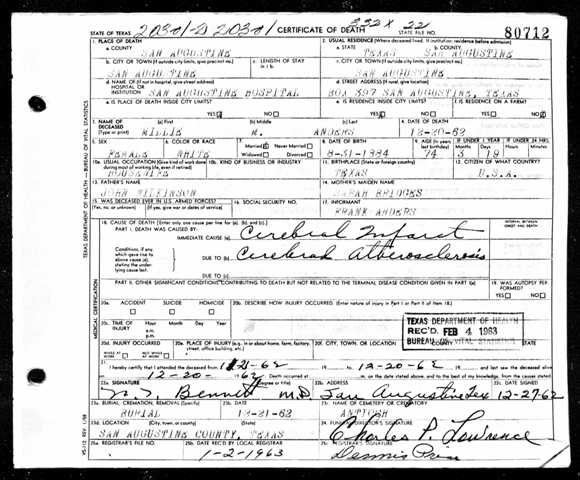 STATE OF TEXAS CERTIFICATE OF DEATH STATE FILE NO. 80712
1. PLACE OF DEATH 2. USUAL RESIDENCE (Where deceased lived. If institution: residence before admission)
a. COUNTY SAN AUGUSTINE a. STATE TEXAS b. COUNTY SAN AUGUSTINE
b. CITY OR TOWN (If outside city limits, give precinct no.) c. LENGTH OF STAY in 1 b. c. CITY OR TOWN (If outside city limits, give precinct no.)
SAN AUGUSTINE SAN AUGUSTINE
d. NAME OF (If not in hospital, give street address) HOSPITAL OR INSTITUTION SAN AUGUSTINE HOSPITAL d. STREET ADDRESS (If rural, give location) BOX 397 SAN AUGUSTINE, TEXAS
e. IS PLACE OF DEATH INSIDE CITY LIMITS? YES NO e. IS RESIDENCE INSIDE CITY LIMITS? YES NO f. IS RESIDENCE ON A FARM? YES NO
3. NAME OF DECEASED (Type or print) (a) First (b) Middle (c) Last 4. DATE OF DEATH
ANDERS 12-20-62
5. SEX 6. COLOR OR RACE 7. Married Never Married Widowed Divorced 8. DATE OF BIRTH 9. AGE (In years last birthday) IF UNDER 1 YEAR Months Days IF UNDER 24 HRS. Hours Min.
FEMALE WHITE
10a. USUAL OCCUPATION (Give kind of work done during most of working life, even if retired) 10b. KIND OF BUSINESS OR INDUSTRY 11. BIRTHPLACE (State or foreign country) 12. CITIZEN OF WHAT COUNTRY?
HOUSEWIFE TEXAS U.S.A.
13. FATHER'S NAME 14. MOTHER'S MAIDEN NAME
JOHN WILKINSON
15. WAS DECEASED EVER IN U.S. ARMED FORCES? (Yes, no, or unknown) (If yes, give war or dates of service) 16. SOCIAL SECURITY NO. 17. INFORMANT
FRANK ANDERS
18. CAUSE OF DEATH (Enter only one cause per line for (a), (b), and (c).) INTERVAL BETWEEN ONSET AND DEATH
PART I. DEATH WAS CAUSED BY:
IMMEDIATE CAUSE (a) Cerebral Infarct
Conditions, if any, which gave rise to above cause (a) stating the underlying cause last. DUE TO (b) Cerebral
DUE TO (c)
PART II. OTHER SIGNIFICANT CONDITIONS CONTRIBUTING TO DEATH BUT NOT RELATED TO THE TERMINAL DISEASE CONDITION GIVEN IN PART I (a) 19. WAS AUTOPSY PERFORMED? YES NO
20a. ACCIDENT SUICIDE HOMICIDE 20b. DESCRIBE HOW INJURY OCCURRED. (Enter nature of injury in Part I or Part II of item 18.)
20c. TIME OF INJURY Hour Month Day Year
TEXAS DEPARTMENT OF HEALTH
REC'D FEB 4 1963
BUREAU OF VITAL STATISTICS
20d. INJURY OCCURRED WHILE AT WORK NOT WHILE AT WORK 20e. PLACE OF INJURY (e.g. in or about home, farm, factory, street, office building, etc.) 20f. CITY, TOWN, OR LOCATION COUNTY
21. I hereby certify that I attended the deceased from to 12-20-62 and last saw the deceased alive
on 12-20-1962. Death occurred at m. on the date stated above, and to the best of my knowledge, from the causes stated.
22a. SIGNATURE (Degree or title) 22b. ADDRESS 22c. DATE SIGNED
Bennett M.D. San Augustine Tex 12-27-62
23a. BURIAL, CREMATION, REMOVAL (Specify) 23b. DATE 23c. NAME OF CEMETERY OR CREMATORY
BURIAL 12-21-62 ANTIOCH
23d. LOCATION (City, town, or county) (State) 24. FUNERAL DIRECTOR'S SIGNATURE
SAN AUGUSTINE COUNTY, TEXAS Charles P. Lawrence
25a. REGISTRAR'S FILE NO. 25b. DATE REC'D BY LOCAL REGISTRAR 25c. REGISTRAR'S SIGNATURE
1-2-1963 Dennis
TEXAS DEPARTMENT OF HEALTH — BUREAU OF VITAL STATISTICS
MEDICAL CERTIFICATION